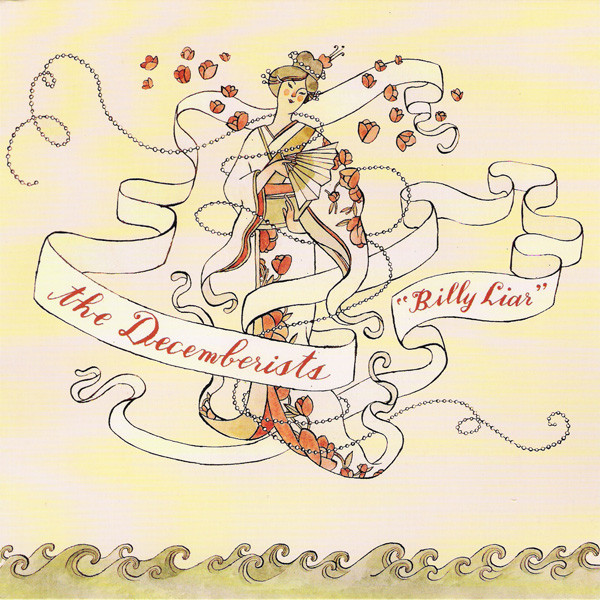 the Decemberists
"Billy Liar"